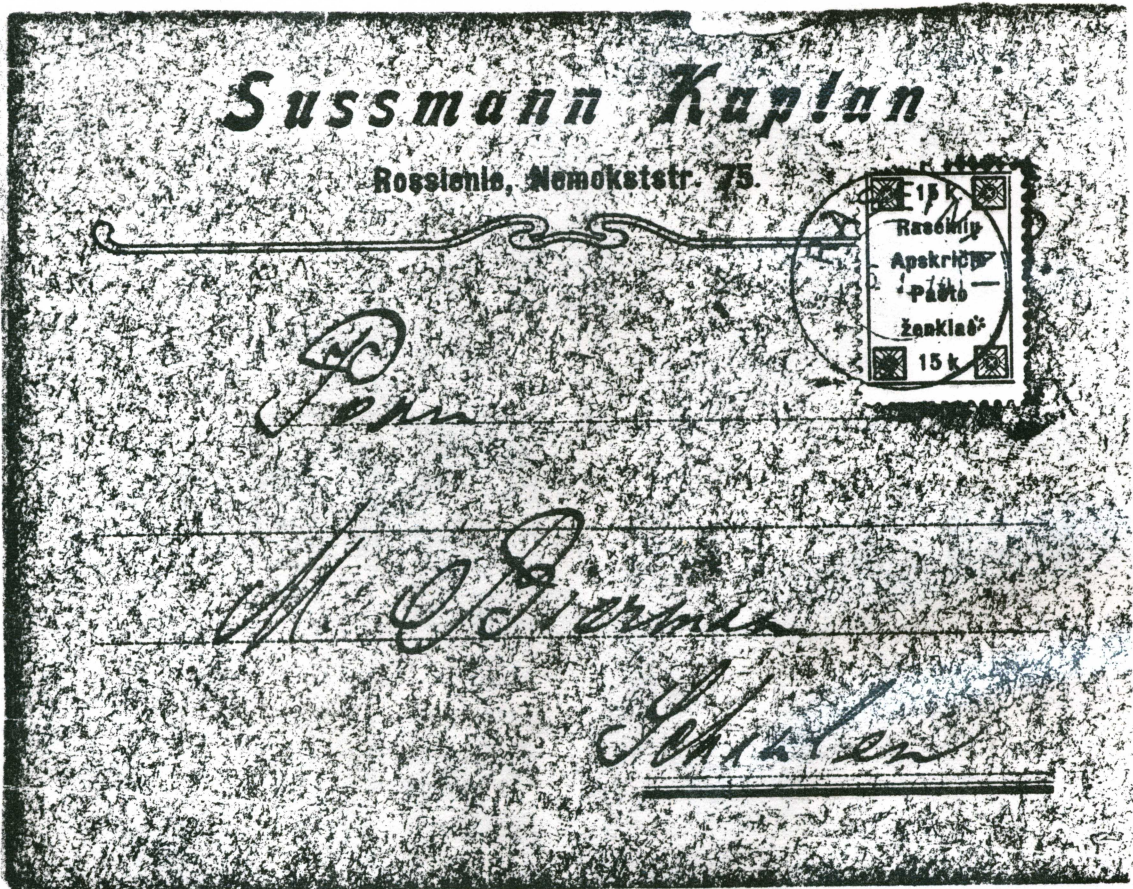 Sussmann Kaplan
Rossienie, Nemokststr. 75.
15 k
Raseinių
Apskričio
Pašto
ženklas
15 k
M.
Schaulen